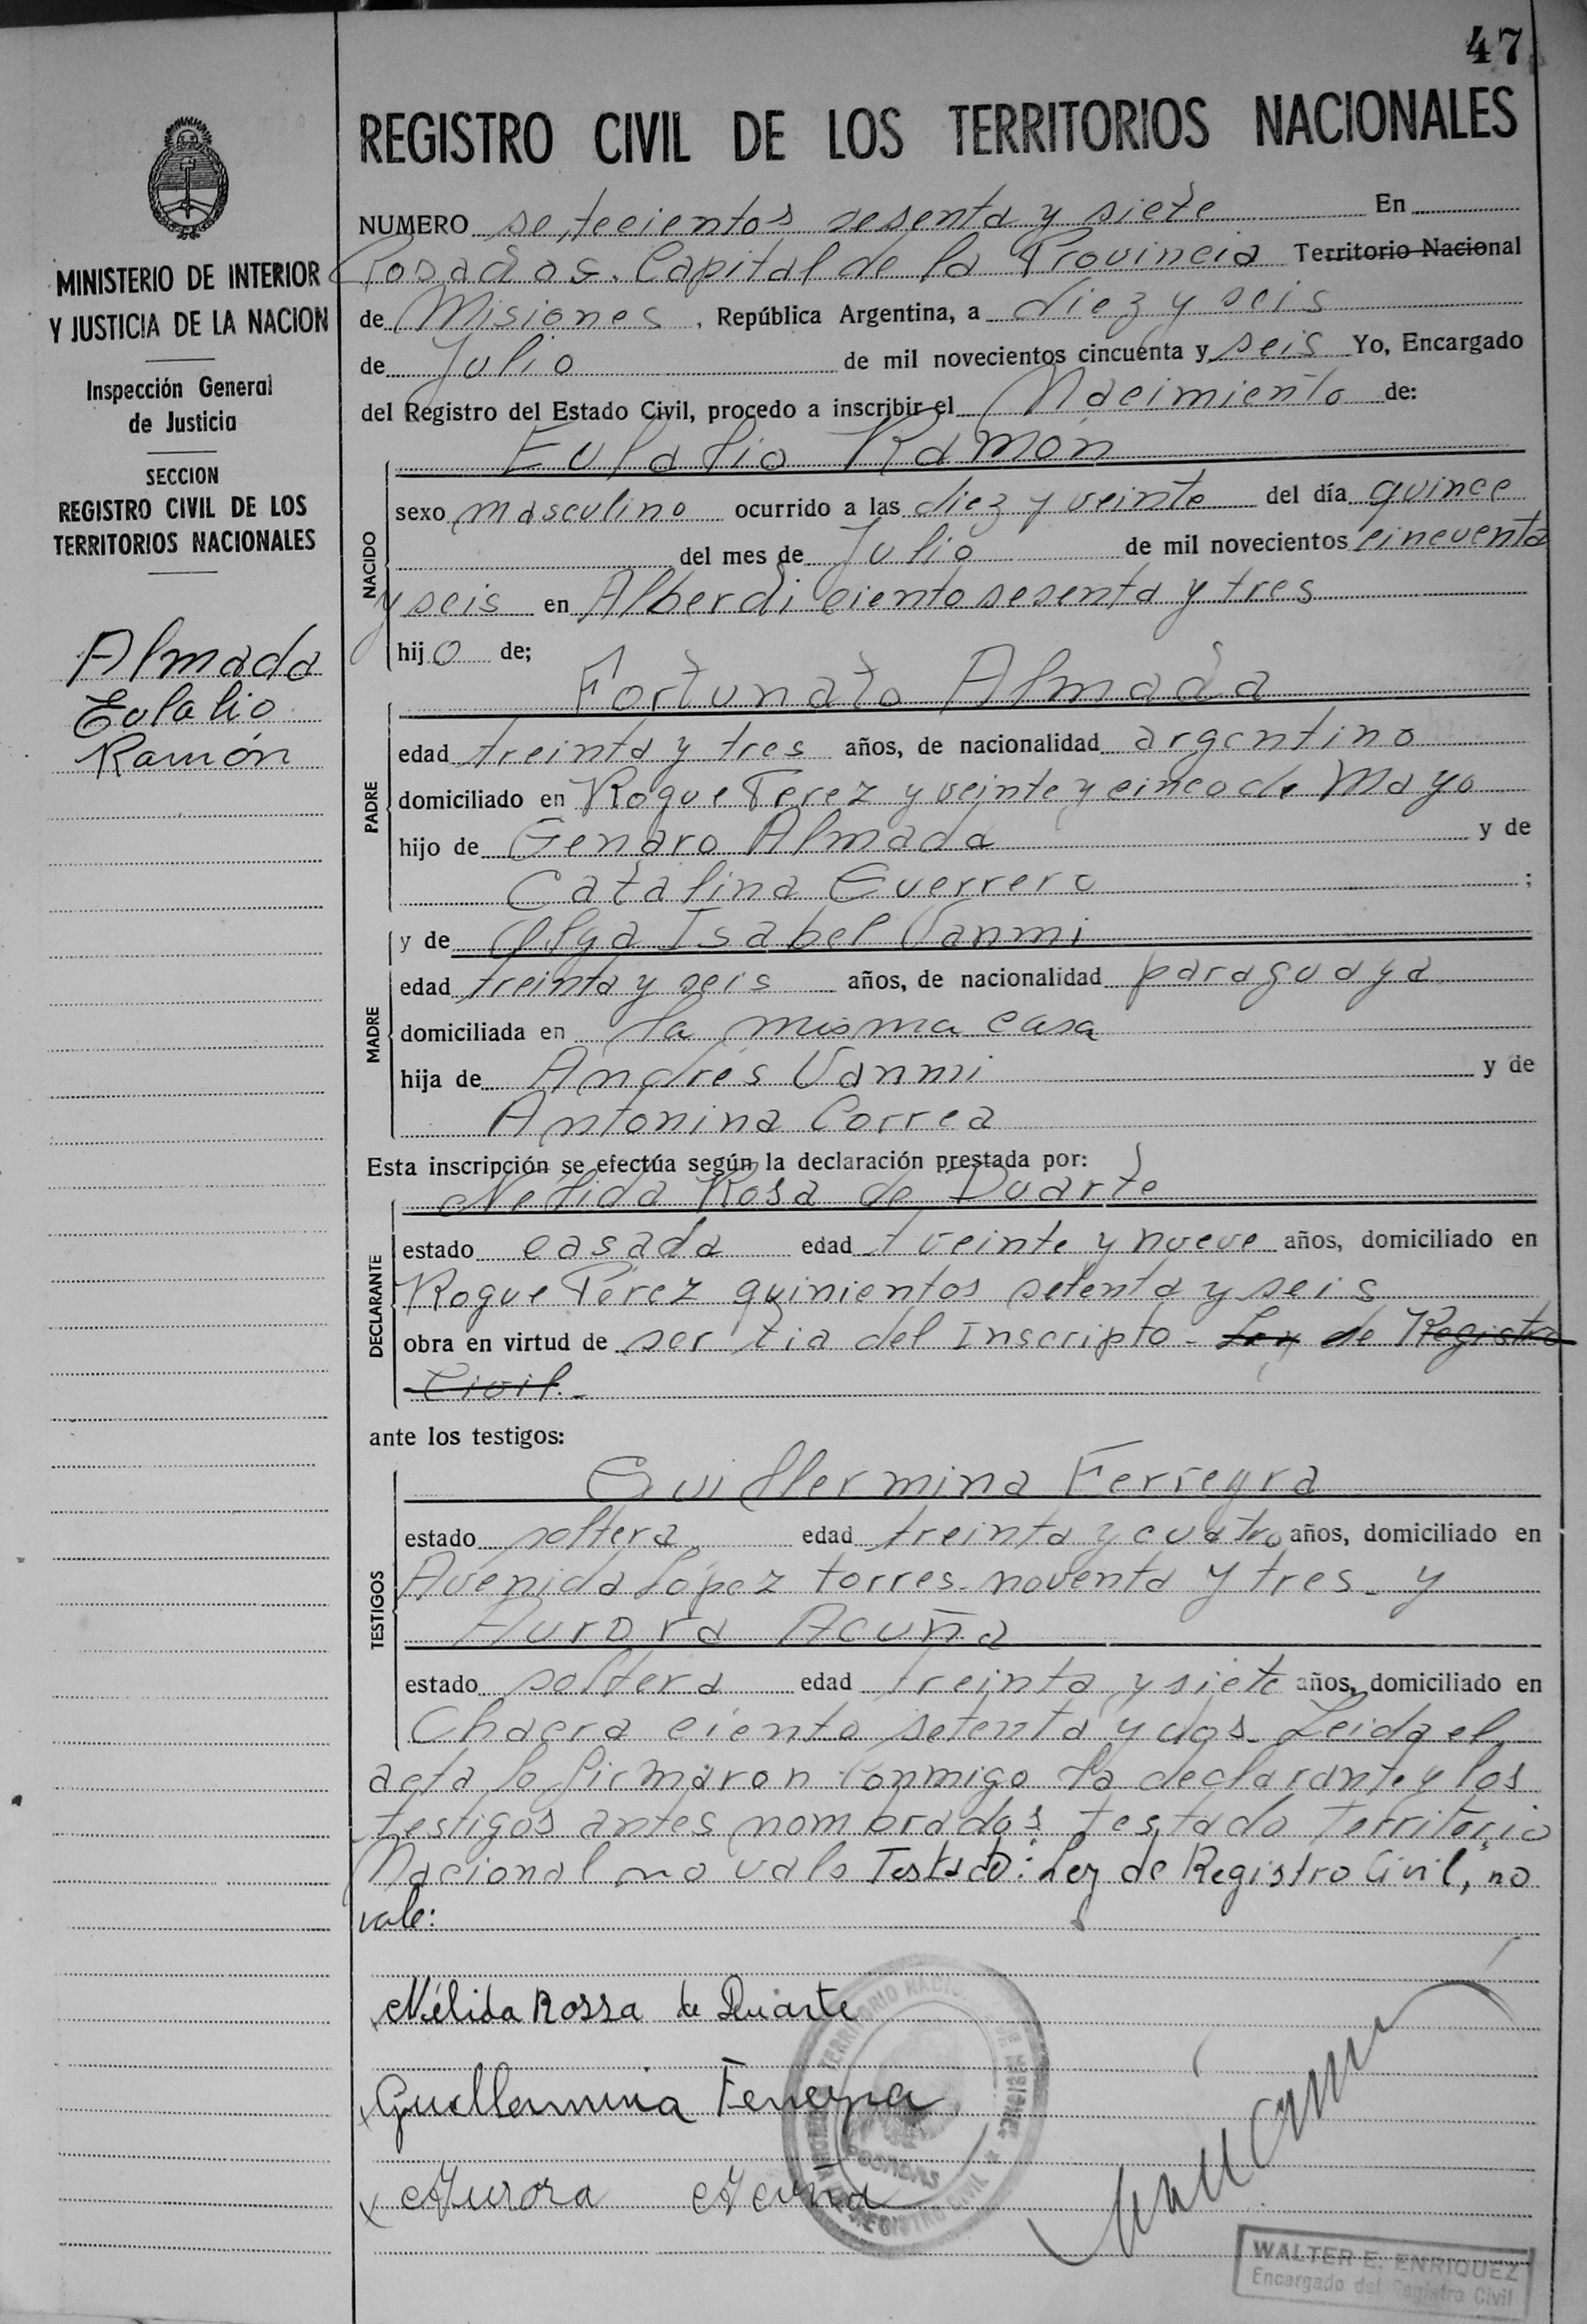 47
REGISTRO CIVIL DE LOS TERRITORIOS NACIONALES
MINISTERIO DE INTERIOR
Y JUSTICIA DE LA NACION
Inspección General
de Justicia
SECCION
REGISTRO CIVIL DE LOS
TERRITORIOS NACIONALES
Almada
Eulalio
Ramón
NUMERO setecientos sesenta y siete En
Posadas. Capital de la Provincia Territorio Nacional
de Misiones, República Argentina, a diez y seis
de Julio de mil novecientos cincuenta y seis Yo, Encargado
del Registro del Estado Civil, procedo a inscribir el Nacimiento de:
Eulalio Ramón
NACIDO
sexo masculino ocurrido a las diez y veinte del día quince
del mes de Julio de mil novecientos cincuenta
y seis en Alberdi ciento sesenta y tres
hijo de;
Fortunato Almada
PADRE
edad treinta y tres años, de nacionalidad argentino
domiciliado en Roque Perez y veinte y cinco de Mayo
hijo de Genaro Almada y de
Catalina Guerrero ;
MADRE
y de Olga Isabel Vanmi
edad treinta y seis años, de nacionalidad paraguaya
domiciliada en la misma casa
hija de Andrés Vanmi y de
Antonina Correa
Esta inscripción se efectúa según la declaración prestada por:
Nelida Rosa de Duarte
DECLARANTE
estado casada edad veinte y nueve años, domiciliado en
Roque Pérez quinientos setenta y seis
obra en virtud de ser tia del Inscripto - Ley de Registro
Civil.-
ante los testigos:
Guillermina Ferreyra
TESTIGOS
estado soltera edad treinta y cuatro años, domiciliado en
Avenida López torres noventa y tres - y
Aurora Acuña
estado soltera edad treinta y siete años, domiciliado en
Chacra ciento setenta y dos - Leida el
acta la firmaron conmigo la declarante y los
testigos antes nombrados testado Territorio
Nacional no vale Testado: Ley de Registro Civil, no
vale:
Nélida Rossa de Duarte
Guillermina Ferreyra
Aurora Acuña
POSADAS
WALTER E. ENRIQUEZ
Encargado del Registro Civil